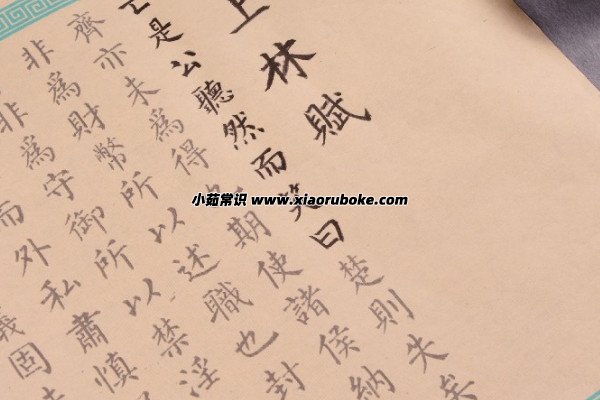 上林賦
亡是公聽然而笑曰楚則失矣
齊亦未為得也期使諸侯納
非為財幣所以述職也封
非為守御所以禁淫
而外私肅慎
義固
小茹常识 www.xiaoruboke.com